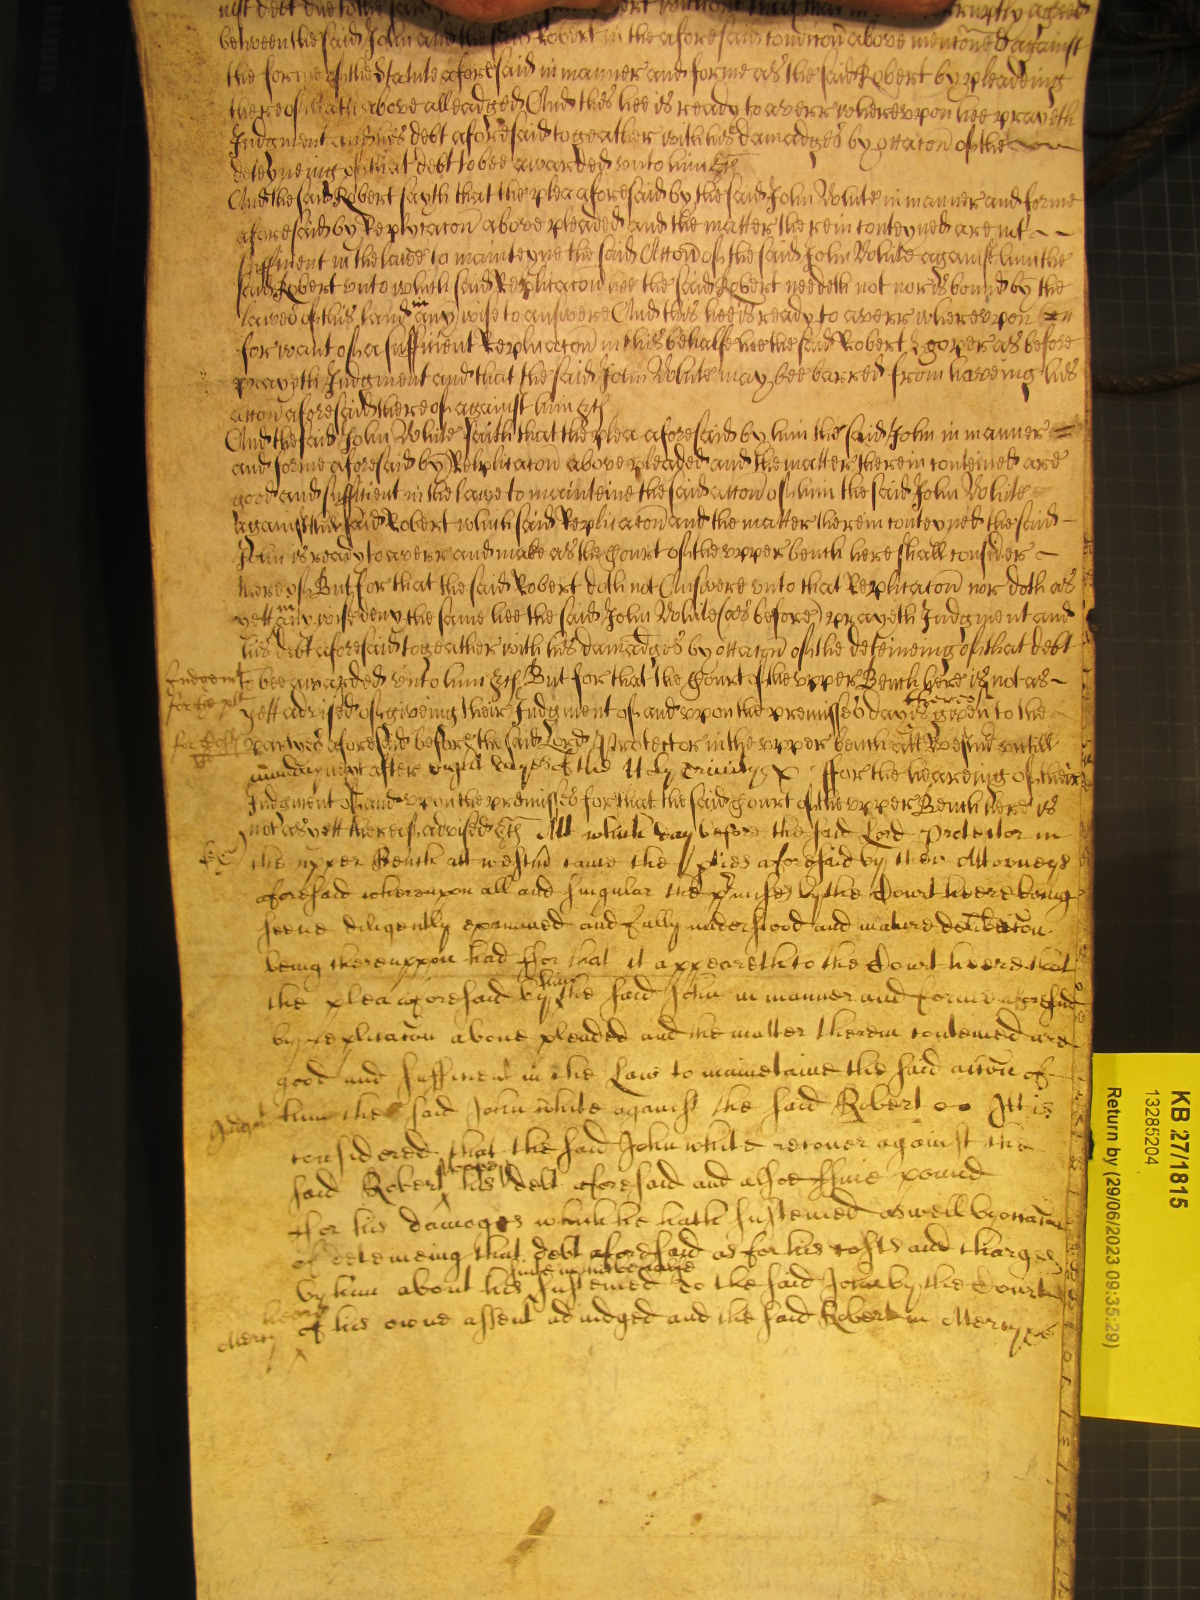 betweene the said John and the said Robert in the aforesaid condicon above mentoned against
the forme of the Statute aforesaid in manner and forme as the said Robert by pleadeing
thereof hath above alleadged And this hee is ready to averr whereupon hee prayeth
Judgment and his debt aforesaid togeather with his damadges by occacon of the
deteyneing of that debt to bee awarded unto him &c
And the said Robert sayth that the plea aforesaid by the said John White in manner and forme
aforesaid by Replycacon above pleaded and the matter therein conteyned are not
sufficient in the lawe to mainteyne the said Accon of the said John White against him the
said Robert unto which said Replicacon hee the said Robert needeth not nor is bound by the
lawes of this land in any wise to answere And this hee is ready to averr whereupon
for want of a sufficient Replicacon in this behalfe hee the said Robert Gover as before
prayeth Judgment and that the said John White may bee barred from haveing his
accon aforesaid thereof against him &c
And the said John White saith that the plea aforesaid by him the said John in manner
and forme aforesaid by Replicacon above pleaded and the matter therein conteined are
good and sufficient in the lawe to mainteine the said accon of him the said John White
against the said Robert which said Replicacon and the matter therein conteyned the said
John is ready to averr and make as the Court of the upper bench here shall consider
thereof But for that the said Robert doth not Answere unto that Replicacon nor doth as
yett in any wise deny the same hee the said John White (as before) prayeth Judgment and
his debt aforesaid togeather with his damadges by occacon of the deteineing of that debt
to bee awarded unto him &c But for that the Court of the upper Bench here is not as
yett advised of giveing their Judgment of and upon the premisses day is given to the
partyes aforesaid before the said Lord Protector in the upper bench att Westm untill
munday next after dayes of the Holy Trinity for the heareing of their
Judgment of and upon the premisses for that the said Court of the upper Bench here is
not as yett thereof advised &c Att which day before the said Lord Protector in
the upper Bench att westm came the pties aforesaid by their Attorneys
aforesaid whereupon all and singular the pmisses by the Court heere being
seene diligently examined and fully understood and mature deliberacon
being thereuppon had ffor that it appeareth to the Court heere that
the plea aforesaid by him the said John in manner and forme aforesaid
by replicacon above pleaded and the matter therein conteined are
good and sufficient in the Law to mainetaine the said accon of
Judgmt
him the said John White against the said Robert It is
considered that the said John white recover against the
said Robert his debt aforesaid and alsoe ffive pound
ffor his damages which he hath susteined aswell by occacon
of deteineing that debt aforesaid as for his costs and charges
by him about his suite in that behalfe susteined to the said John by the Court
heere
Mercy
of his owne assent adiudged and the said Robert in Mercy &c
KB 27/1815
13285204
Return by (29/06/2023 09:35:29)